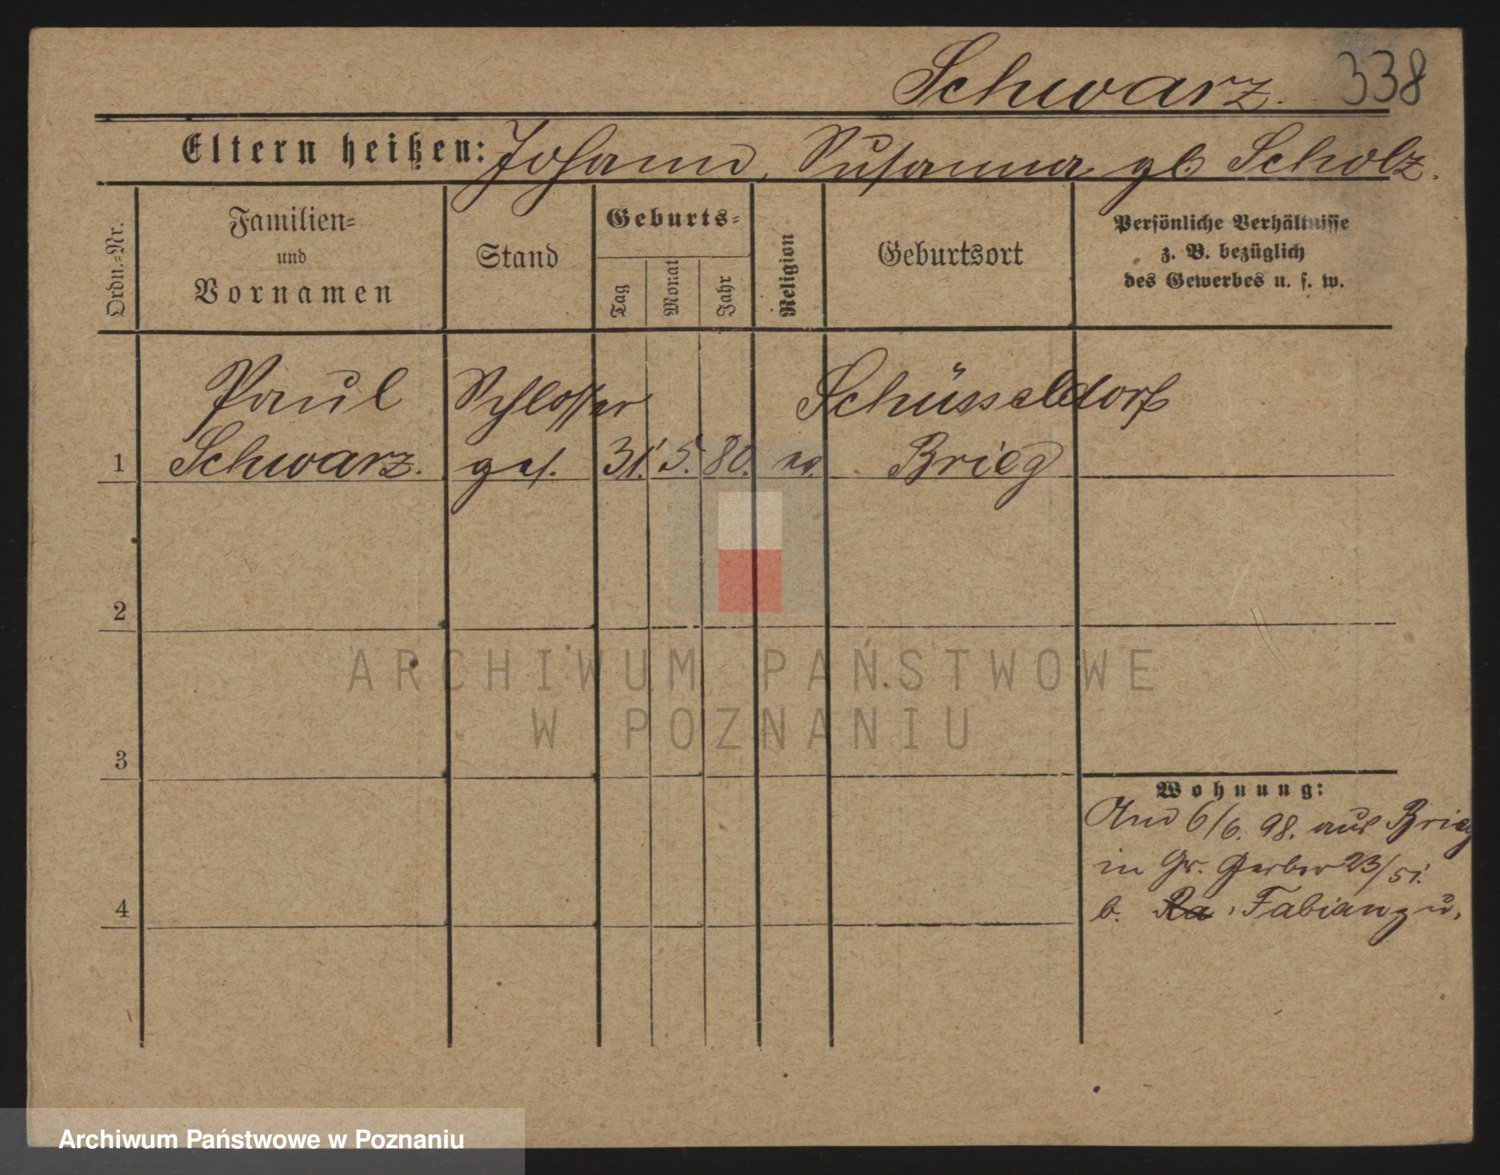 Schwarz. 338
Eltern heißen: Johann, Susanna gb Scholz.
Ordn.=Nr.
Familien=
und
Vornamen
Stand
Geburts=
Tag
Monat
Jahr
Religion
Geburtsort
Persönliche Verhältnisse
z. B. bezüglich
des Gewerbes u. s. w.
Paul Schlosser Schüsseldorf
1 Schwarz. ges. 31. 5. 80. ev. Brieg
2
ARCHIWUM PAŃSTWOWE
W POZNANIU
3
Wohnung:
6/6. 98. aus Brieg
in Gr. Gerber 23/
4
b. Fabian zu.
Archiwum Państwowe w Poznaniu